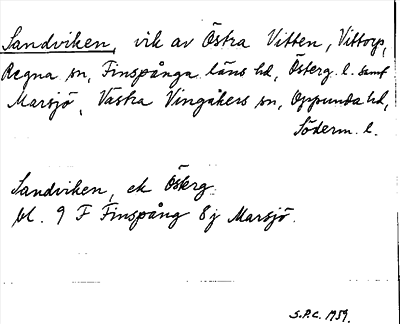 Sandviken, vik av Östra Vitten, Vittorp,
Regna sn, Finspånga läns hd, Österg. l. samt
Marsjö, Västra Vingåkers sn, Oppunda hd,
Söderm. l.
Sandviken, ek Österg.
bl. 9 F Finspång 8j Marsjö.
S.P.C. 1959.